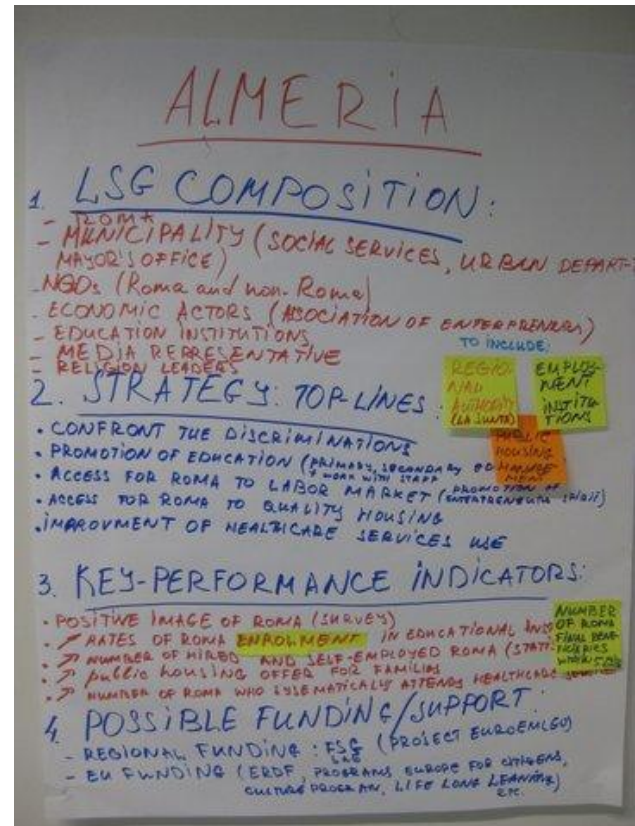 ALMERIA
1. LSG COMPOSITION:
- ROMA
- MUNICIPALITY (SOCIAL SERVICES, URBAN DEPART-T
MAYOR'S OFFICE)
- NGOs (Roma and non-Roma)
- ECONOMIC ACTORS (ASSOCIATION OF ENTERPRENEURS)
- EDUCATION INSTITUTIONS
- MEDIA REPRESENTATIVE
- RELIGION LEADERS
TO INCLUDE:
REGIO-
NAL
AUTHORITY
(LA JUNTA)
EMPLOY-
MENT
INSTITU-
TIONS
PUBLIC
HOUSING
MANAGE-
MENT
2. STRATEGY: TOP-LINES:
• CONFRONT THE DISCRIMINATIONS
• PROMOTION OF EDUCATION (PRIMARY, SECONDARY
+ WORK WITH STAFF
• ACCESS FOR ROMA TO LABOR MARKET (PROMOTION OF
ENTERPRENEURS SPIRIT)
• ACCESS FOR ROMA TO QUALITY HOUSING
• IMPROVMENT OF HEALTHCARE SERVICES USE
3. KEY-PERFORMANCE INDICATORS:
• POSITIVE IMAGE OF ROMA (SURVEY)
• ↗ RATES OF ROMA ENROLMENT IN EDUCATIONAL
• ↗ NUMBER OF HIRED AND SELF-EMPLOYED ROMA
• ↗ public housing OFFER FOR FAMILIES
• ↗ NUMBER OF ROMA WHO SYSTEMATICALLY ATTENDS HEALTHCARE
NUMBER
OF ROMA
FINAL BENE-
FICIERIES
4. POSSIBLE FUNDING/SUPPORT:
- REGIONAL FUNDING: FSG (PROJECT
- EU FUNDING (ERDF, PROGRAMS EUROPE FOR CITIZENS,
CULTURE PROGRAM, LIFE LONG LEARNING)
ETC.